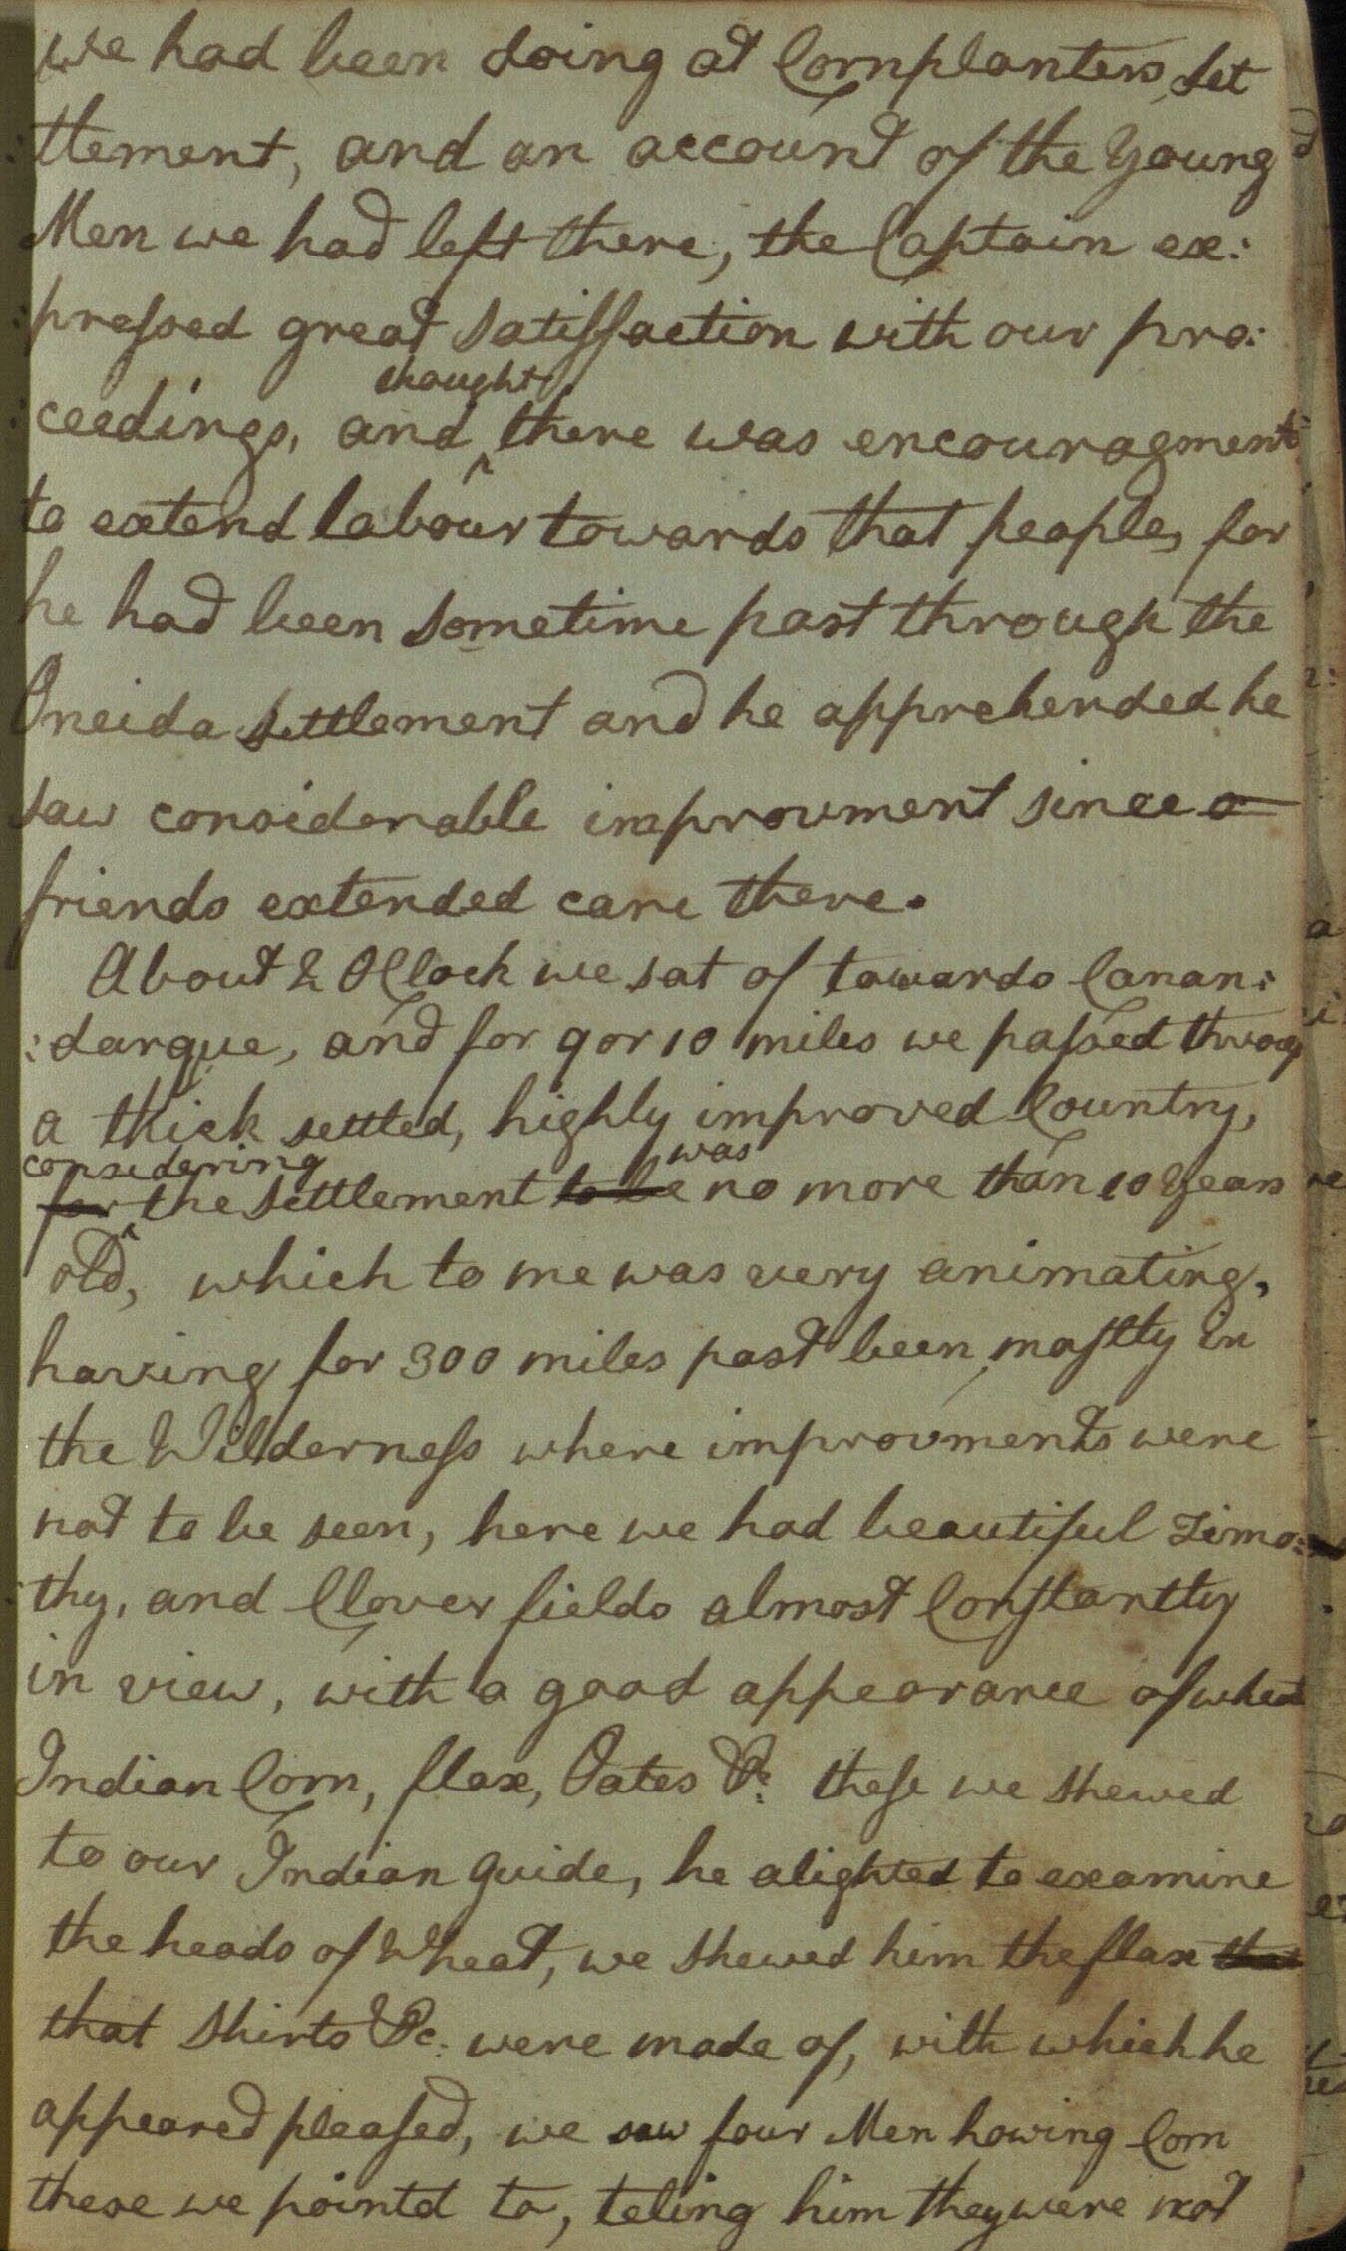 we had been doing at Cornplanters Set
tlement, and an account of the Young
Men we had left there, the Captain ex:
pressed great satisfaction with our pro:
thought
ceedings, and there was encouragment
to extend labour towards that people, for
he had been sometime past through the
Oneida Settlement and he apprehended he
saw considerable improvment since a
friends extended care there.
About 2 OClock we sat of towards Canan:
:darque, and for 9 or 10 miles we passed throug
a thick settled, highly improved Country,
considering was
for the Settlement to be no more than 10 Years
old, which to me was very animating,
having for 300 miles past been mostly in
the Wilderness where improvments were
not to be seen, here we had beautiful Timo:
thy, and Clover fields almost Constantly
in view, with a good appearance of wheat
Indian Corn, flax, Oates &c: these we shewed
to our Indian guide, he alighted to examine
the heads of Wheat, we shewed him the flax that
that Shirts &c: were made of, with which he
appeared pleased, we saw four Men howing Corn
these we pointd to, teling him they were not